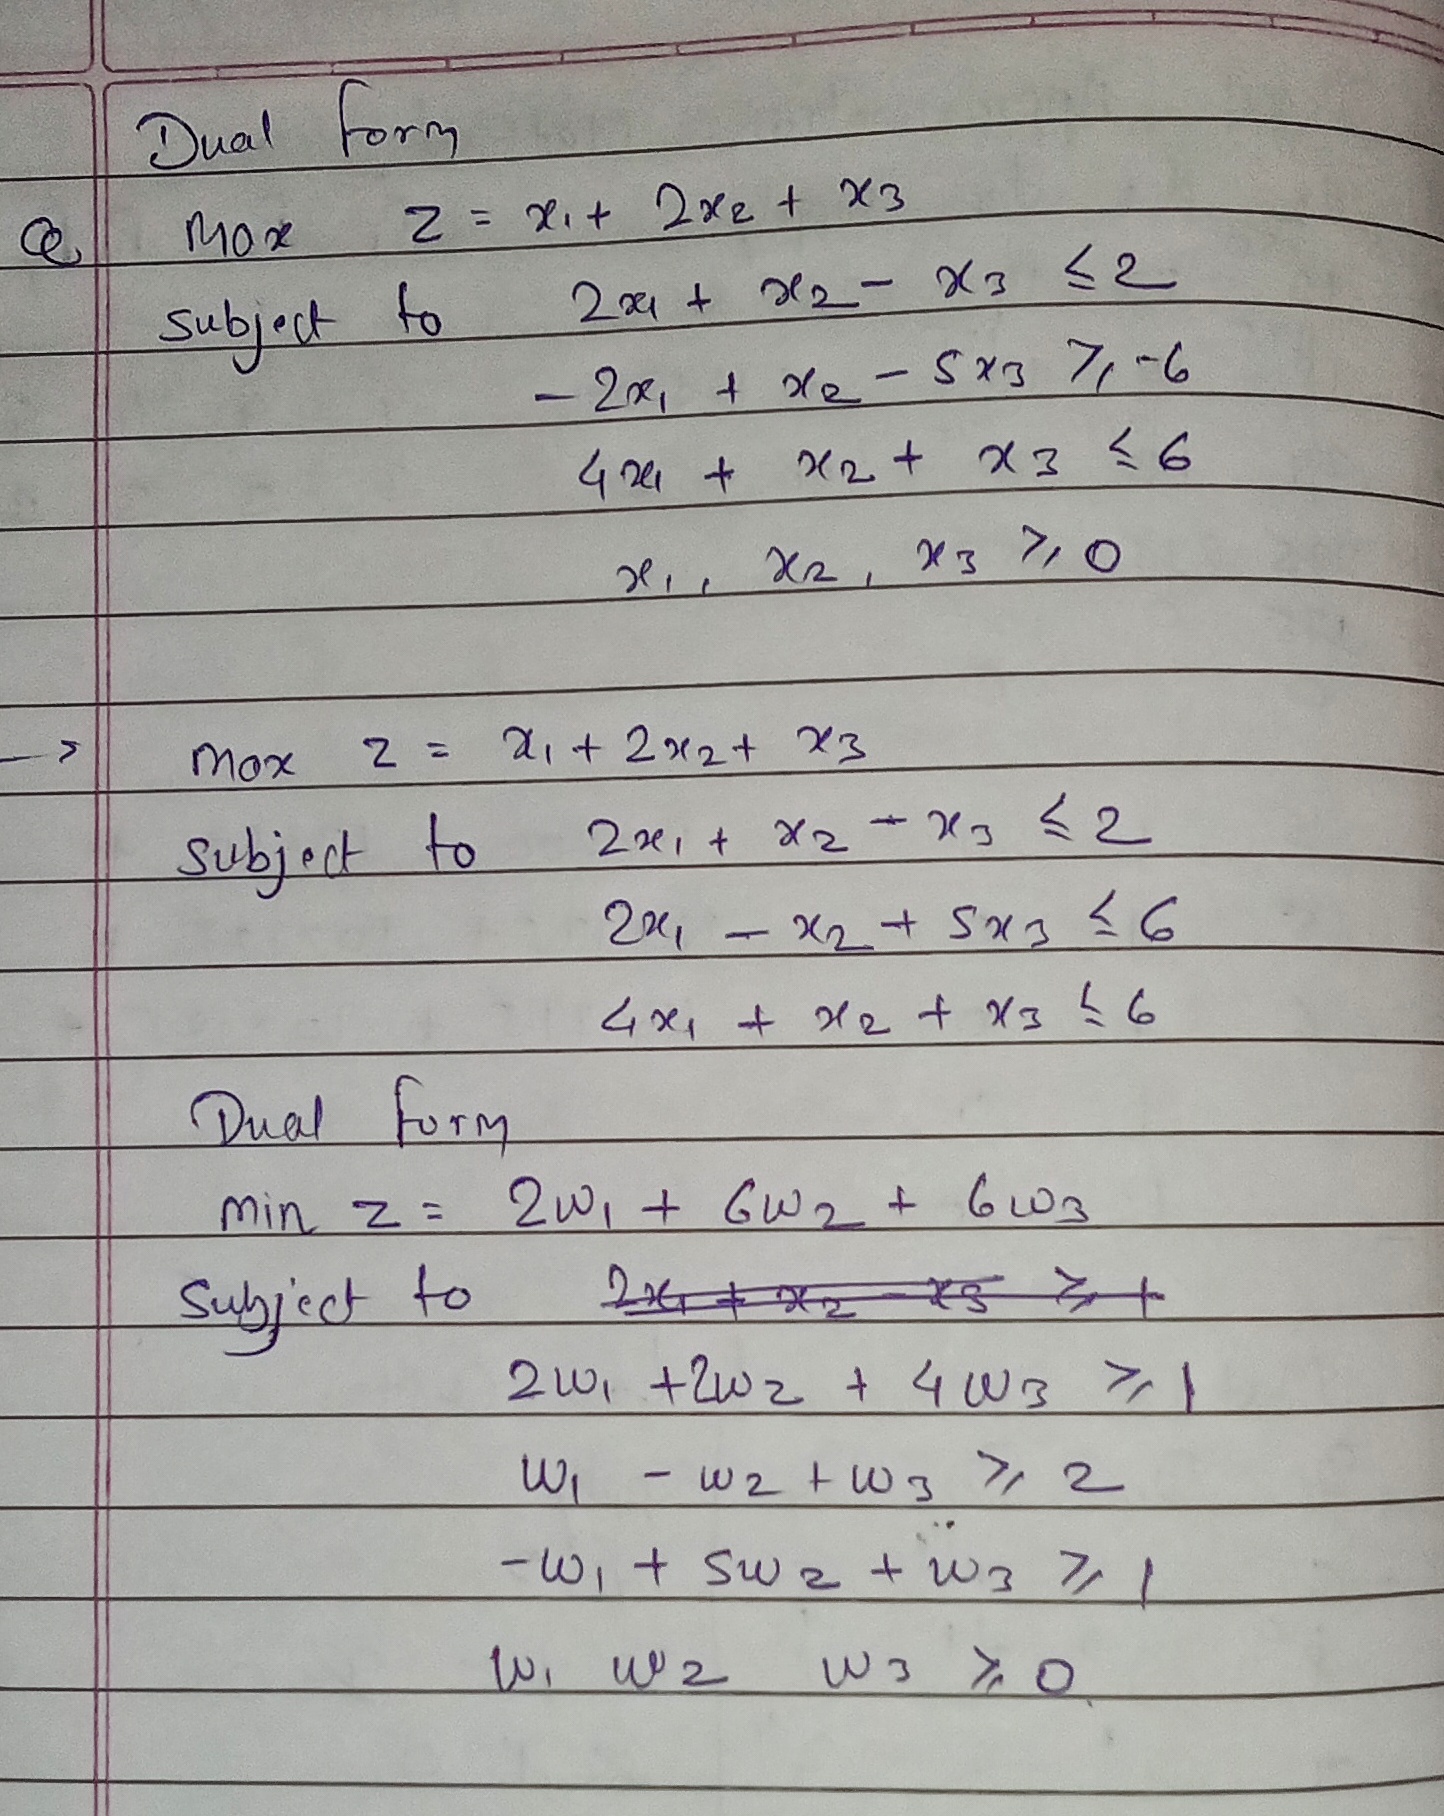 Dual Form
Q Max z = x1 + 2x2 + x3
subject to 2x1 + x2 - x3 ≤ 2
- 2x1 + x2 - 5x3 ≥ -6
4x1 + x2 + x3 ≤ 6
x1, x2, x3 ≥ 0
→ Max z = x1 + 2x2 + x3
subject to 2x1 + x2 - x3 ≤ 2
2x1 - x2 + 5x3 ≤ 6
4x1 + x2 + x3 ≤ 6
Dual Form
Min z = 2w1 + 6w2 + 6w3
subject to 2x1 + x2 - x3 ≥ 1
2w1 + 2w2 + 4w3 ≥ 1
w1 - w2 + w3 ≥ 2
-w1 + 5w2 + w3 ≥ 1
w1 w2 w3 ≥ 0